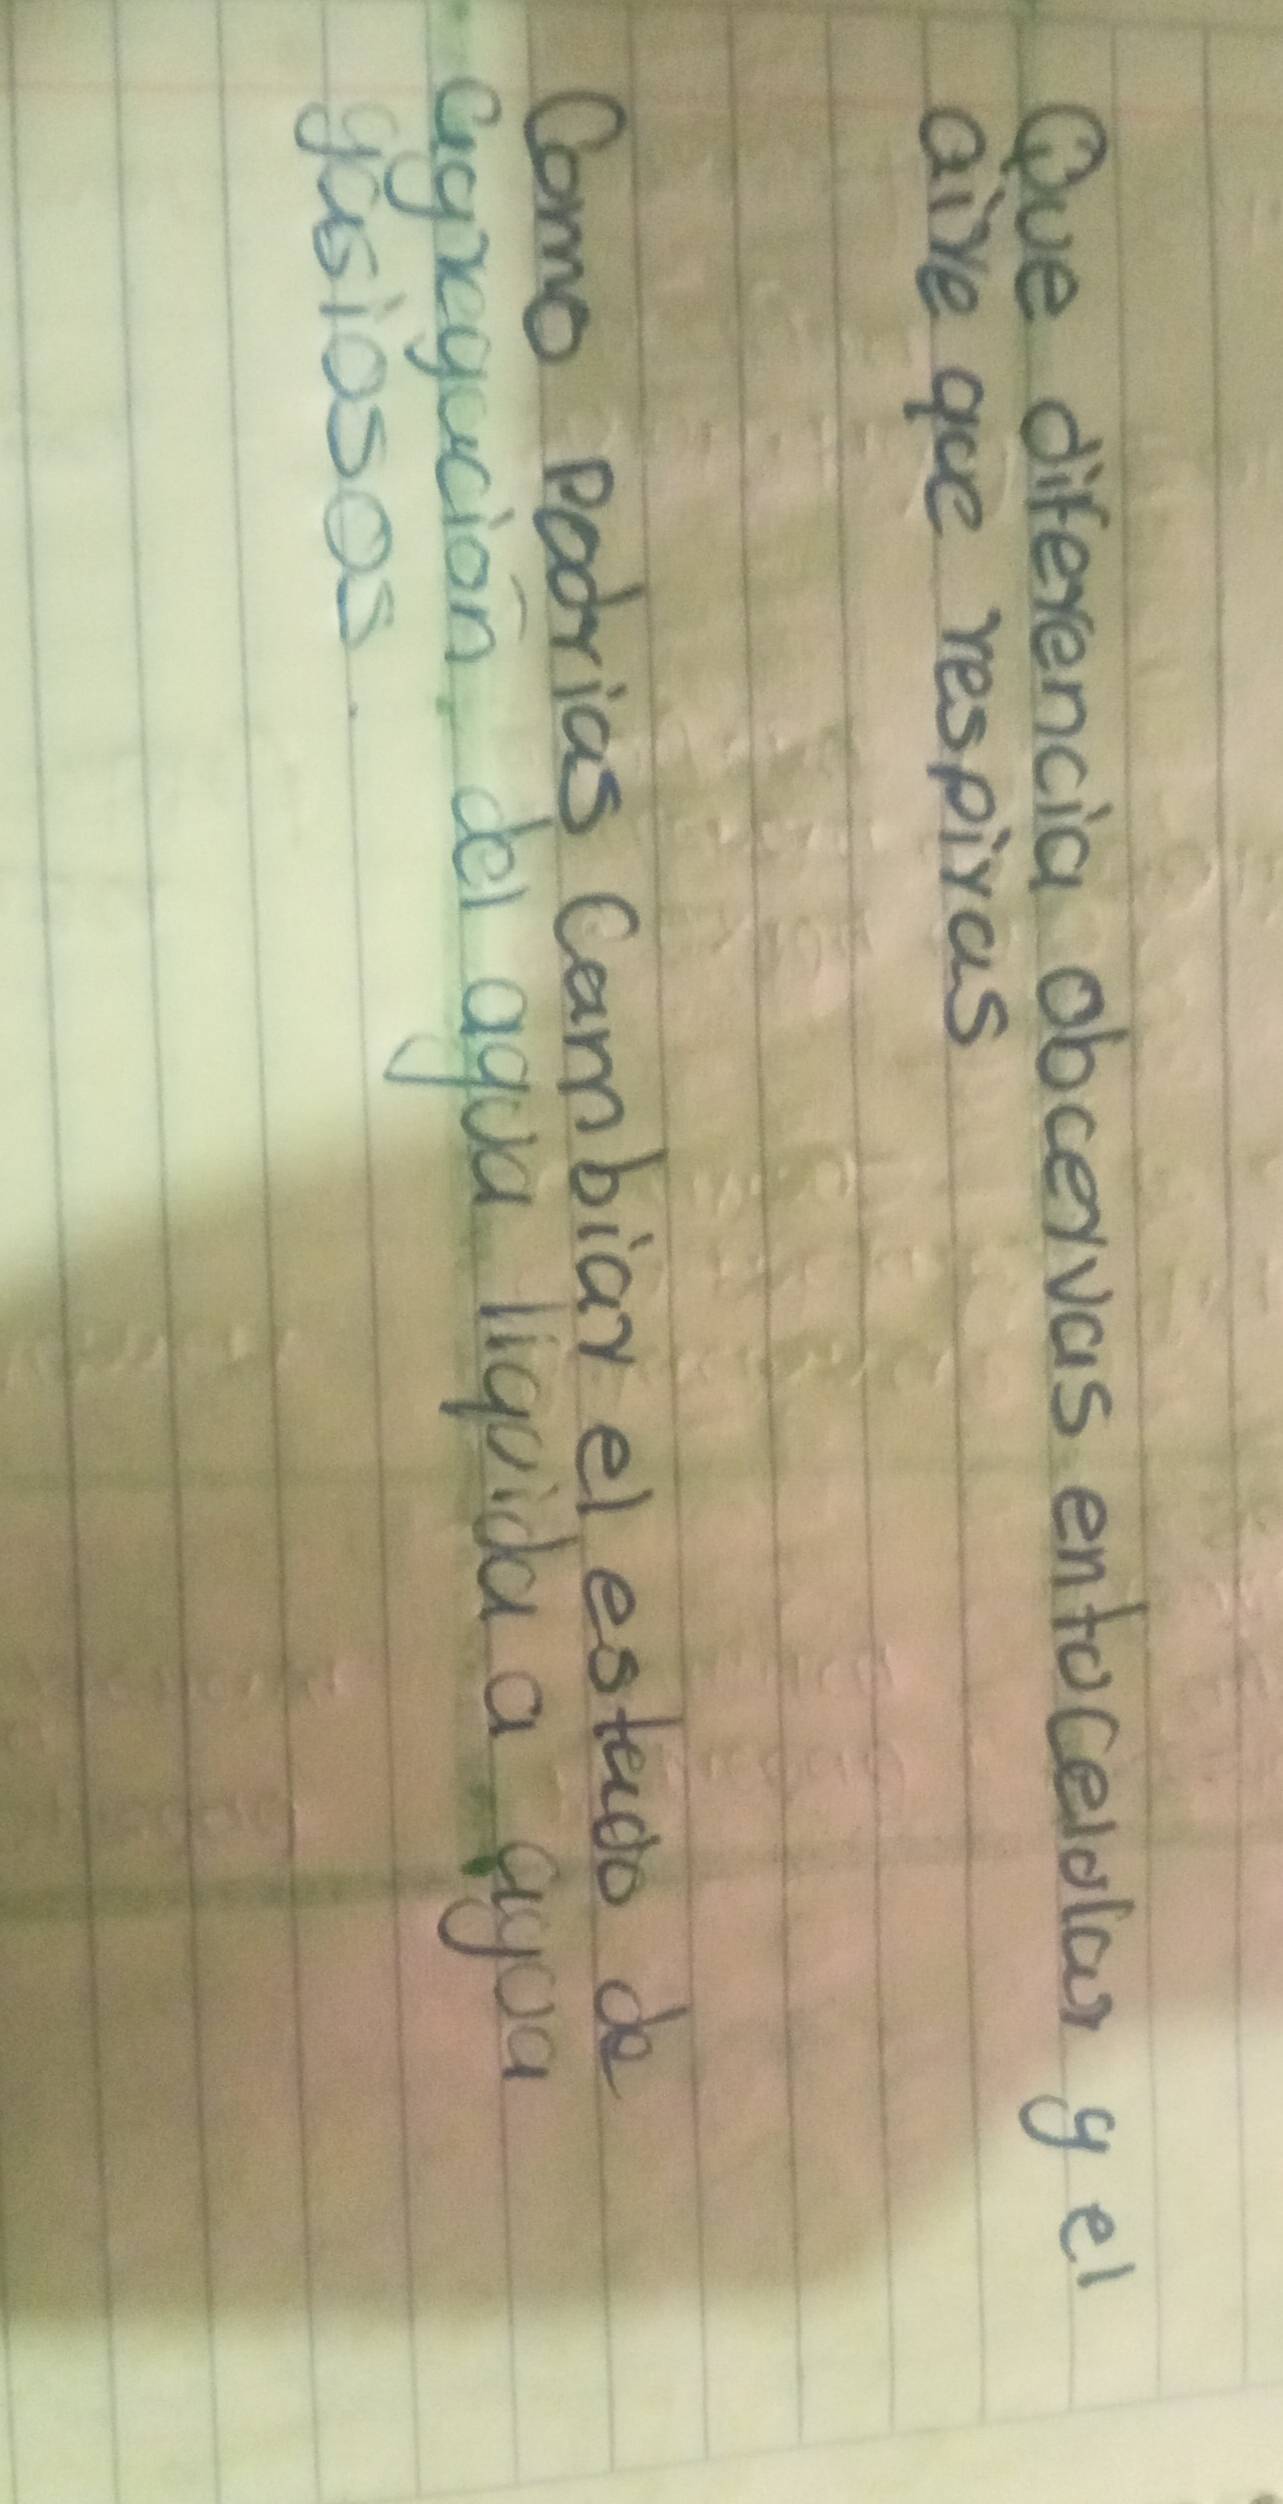 Que diferencia obcervas entocelolar y el
aire que respiras
Como Podrias Cambiar el estado de
agregacion del agua liquida a agua
gasiosos.